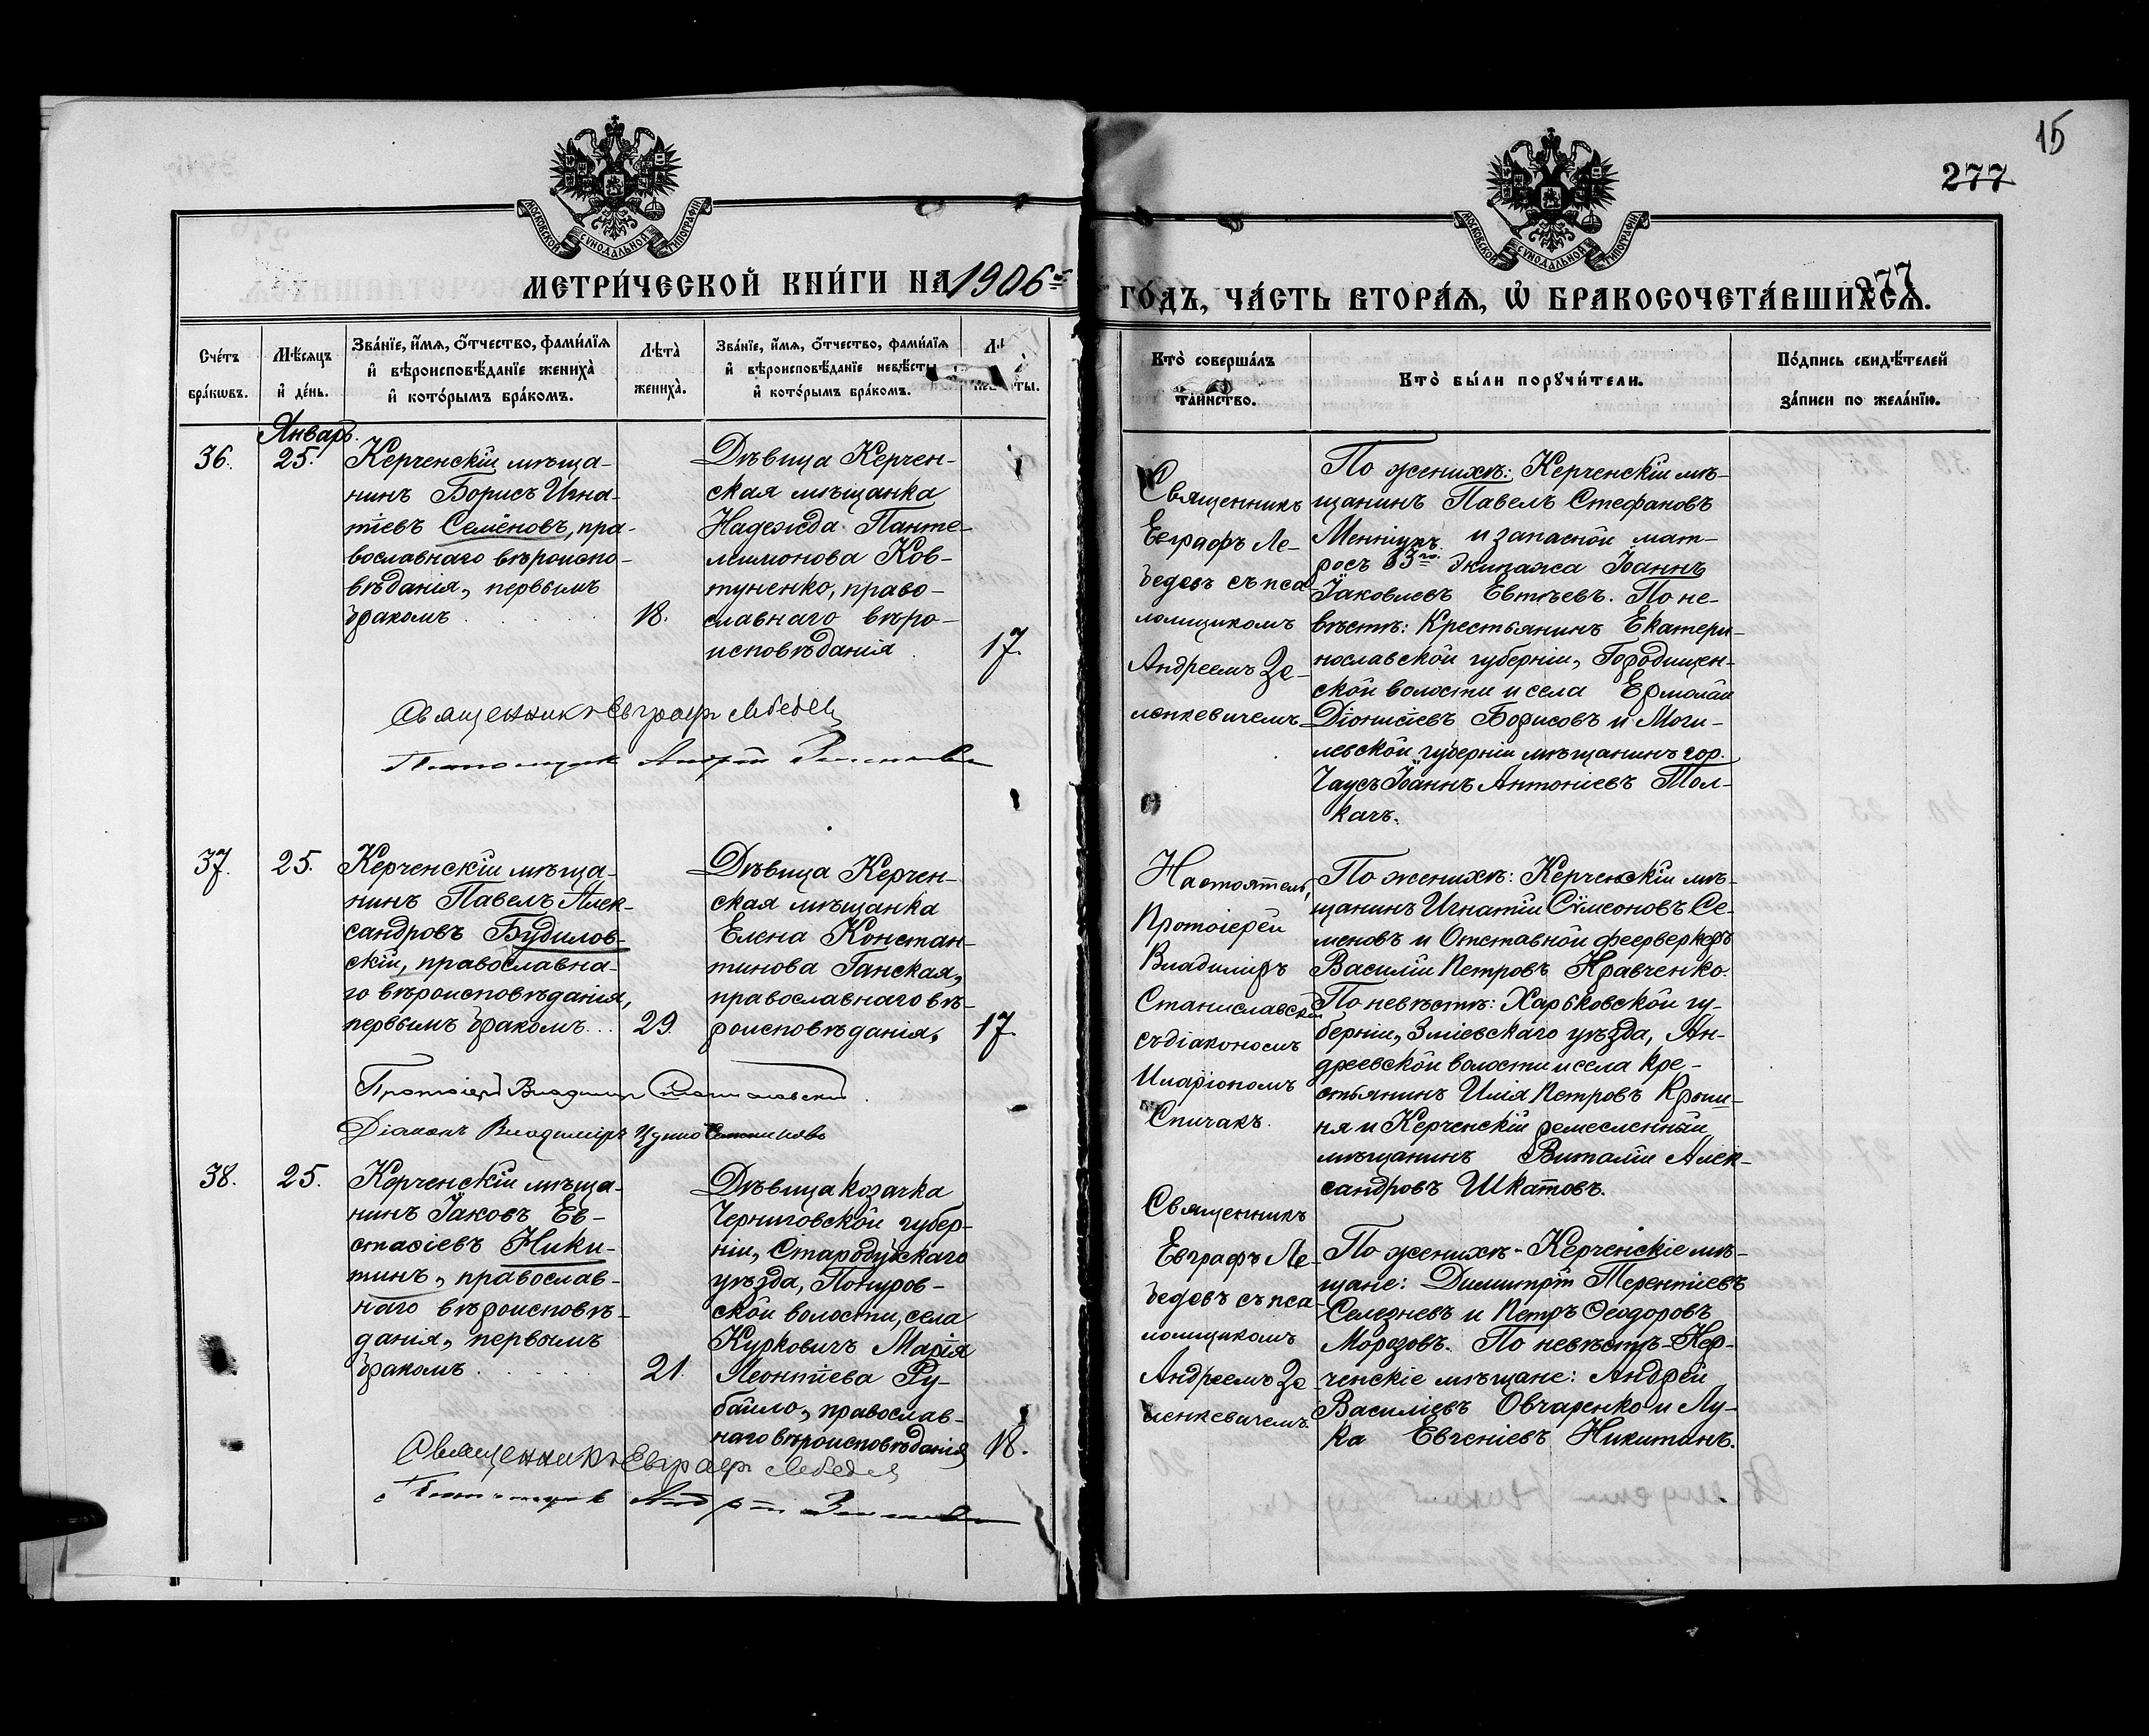 15
277
МОСКОВСКОЙ СУНОДАЛЬНОЙ ТИПОГРАФІИ
МОСКОВСКОЙ СУНОДАЛЬНОЙ ТИПОГРАФІИ
МЕТРИ́ЧЕСКОЙ КНИ́ГИ НА 1906й
277
ГО́ДЪ, ЧА́СТЬ ВТОРА́Ѧ, Ѡ҆ БРАКОСОЧЕТА́ВШИХСѦ.
Сче́тъ
бра́кѡвъ.
Мѣ́сѧцъ
и҆ де́нь.
Зва́нїе, и҆́мѧ, ѻ҆́тчество, фами́лїѧ
и҆ вѣроисповѣ́данїе жениха̀
и҆ кото́рымъ бра́комъ.
Лѣта̀
жениха̀.
Зва́нїе, и҆́мѧ, ѻ҆́тчество, фами́лїѧ
и҆ вѣроисповѣ́данїе невѣ́сты
и҆ кото́рымъ бра́комъ.
Кто̀ соверша́лъ
та́инство.
Кто̀ бы́ли порꙋчи́тели.
По́дпись свидѣ́телей
за́писи по жела́нїю.
Январь.
36.
25.
Керченскій мѣща-
нинъ Борисъ Игна-
тіевъ Семёновъ, пра-
вославнаго вѣроиспо-
вѣданія, первымъ
бракомъ
18.
Дѣвица Керчен-
ская мѣщанка
Надежда Панте-
леимонова Ков-
туненко, право-
славнаго вѣро-
исповѣданія
17.
Священникъ
Евграфъ Ле-
бедевъ съ пса-
ломщикомъ
Андреемъ Зе-
ленкевичемъ
По женихѣ: Керченскій мѣ-
щанинъ Павелъ Стефановъ
и запасной мат-
росъ 33го экипажа Іоаннъ
Іаковлевъ Евтѣевъ. По не-
вѣстѣ: Крестьянинъ Екатери-
нославской губерніи, Городищен-
ской волости и села Ермолай
Діонисіевъ Борисовъ и Моги-
левской губерніи мѣщанинъ гор.
Чаусъ Іоаннъ Антоніевъ Тол-
качъ.
Священникъ Евграфъ Лебедев
Псаломщик Андрей
37.
25.
Керченскій мѣща-
нинъ Павелъ Алек-
сандровъ Будилов-
скій, православна-
го вѣроисповѣданія,
первымъ бракомъ...
29.
Дѣвица Керчен-
ская мѣщанка
Елена Констан-
тинова Ганская,
православнаго вѣ-
роисповѣданія.
17.
Настоятель,
Протоіерей
Владиміръ
Станиславскій
съ діакономъ
Иларіономъ
Спичакъ.
По женихѣ: Керченскій мѣ-
щанинъ Игнатій Сѵмеоновъ Се-
меновъ и Отставной феерверкеръ
Василій Петровъ Кравченко.
По невѣстѣ: Харьковской гу-
берніи, Зміевскаго уѣзда, Ан-
дреевской волости и села кре-
стьянинъ Илія Петровъ
и Керченскій ремесленный
мѣщанинъ Виталій Алек-
сандровъ Шкатовъ.
Протоіерей Владимир Станиславский
Діаконъ Владиміръ
38.
25.
Керченскій мѣща-
нинъ Іаковъ Ев-
стаѳіевъ Ники-
тинъ, православ-
наго вѣроисповѣ-
данія, первымъ
бракомъ
21.
Дѣвица козачка
Черниговской губер-
ніи, Стародубскаго
уѣзда, Понуров-
ской волости, села
Курковичъ Марія
Леонтіева Ру-
байло, православ-
наго вѣроисповѣданія
18.
Священникъ
Евграфъ Ле-
бедевъ съ пса-
ломщикомъ
Андреемъ Зе-
ленкевичемъ
По женихѣ - Керченскіе мѣ-
щане: Димитрій Терентіевъ
Селезневъ и Петръ Ѳеодоровъ
Морозовъ. По невѣстѣ - Кер-
ченскіе мѣщане: Андрей
Василіевъ Овчаренко и Лу-
ка Евгеніевъ Никитинъ.
Священникъ Евграфъ Лебедев
Псаломщик Андрей